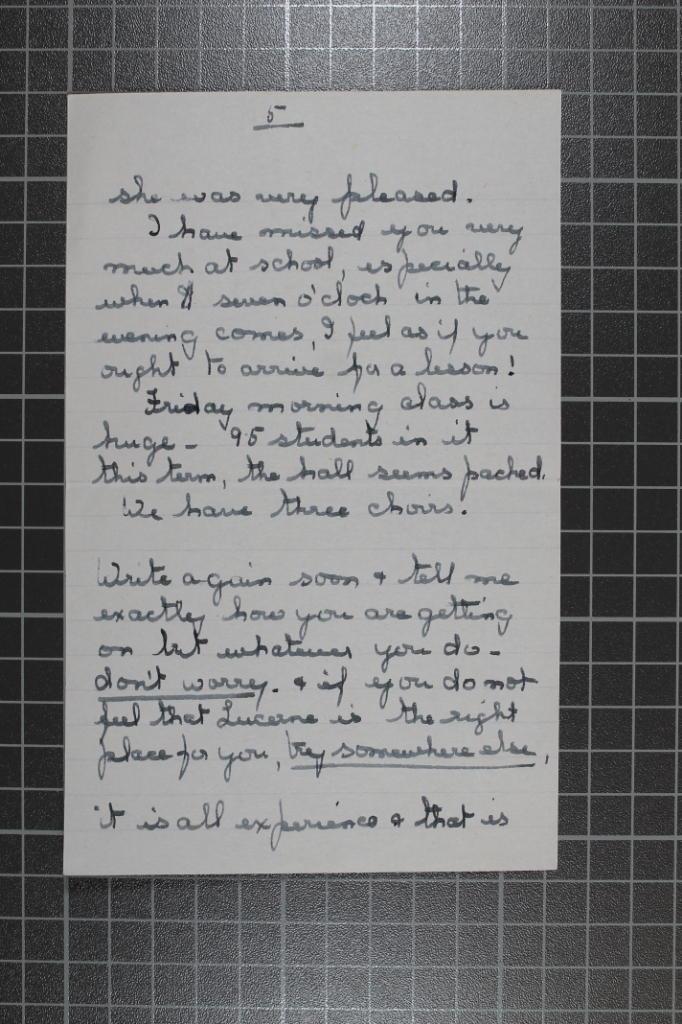 5
she was very pleased.
I have missed you very
much at school, especially
when seven o'clock in the
evening comes, I feel as if you
ought to arrive for a lesson!
Friday morning class is
huge - 95 students in it
this term, the hall seems packed.
We have three choirs.
Write again soon & tell me
exactly how you are getting
on but whatever you do -
don't worry. & if you do not
feel that Lucerne is the right
place for you, try somewhere else,
it is all experience & that is